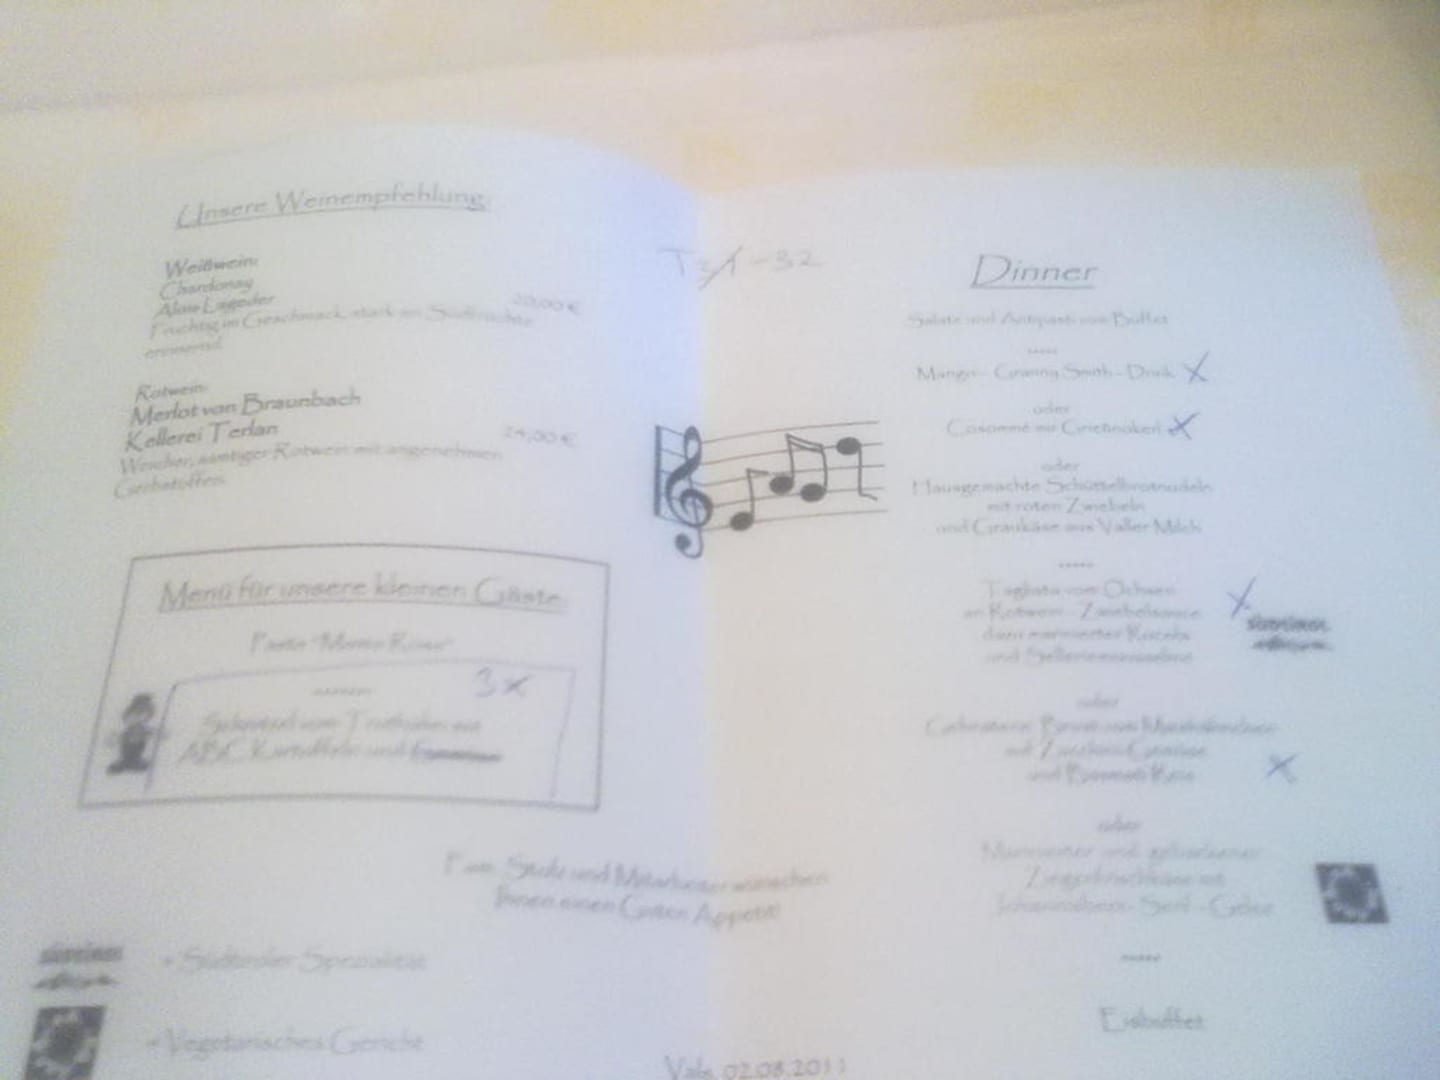 Unsere Weinempfehlung
Weißwein:
Chardonay
Alois Lageder
20,00 €
Fruchtig im Geschmack, stark an Südfrüchte
erinnernd.
Rotwein:
Merlot von Braunbach
Kellerei Terlan
24,00 €
Weicher, samtiger Rotwein mit angenehmen
Gerbstoffen.
Menü für unsere kleinen Gäste
Pasta "Monte Rosa"
3x
Schnitzel vom Truthahn mit
ABC Kartoffeln und
Fam. Stolz und Mitarbeiter wünschen
Ihnen einen Guten Appetit!
= Südtiroler Spezialität
= Vegetarisches Gericht
Vals, 02.08.2011
-32
Dinner
Salate und Antipasti vom Buffet
Mango - Granny Smith - Drink X
oder
Cosommé mit Grießnockerl X
oder
Hausgemachte Schüttelbrotnudeln
mit roten Zwiebeln
und Graukäse aus Valler Milch
Tagliata vom Ochsen X
an Rotwein - Zwiebelsauce
dazu marinierter Rucola
und
oder
Gebratene Brust vom
mit Zucchini
und Basmati Reis X
oder
Marinierter und gebackener
Ziegenfrischkäse mit
Johannisbeer - Senf - Gelee
Eisbuffet